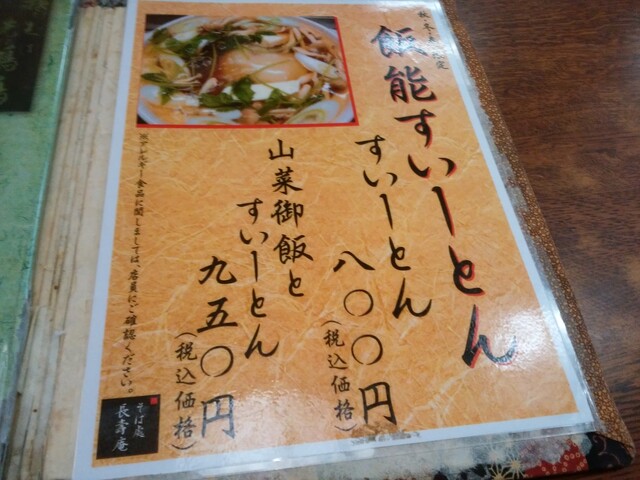 秋・冬・春限定
飯能すいーとん
すいーとん
八〇〇円
(税込価格)
山菜御飯と
すいーとん
九五〇円
(税込価格)
※アレルギー食品に関しましては、店員にご確認ください。
そば処
長寿庵